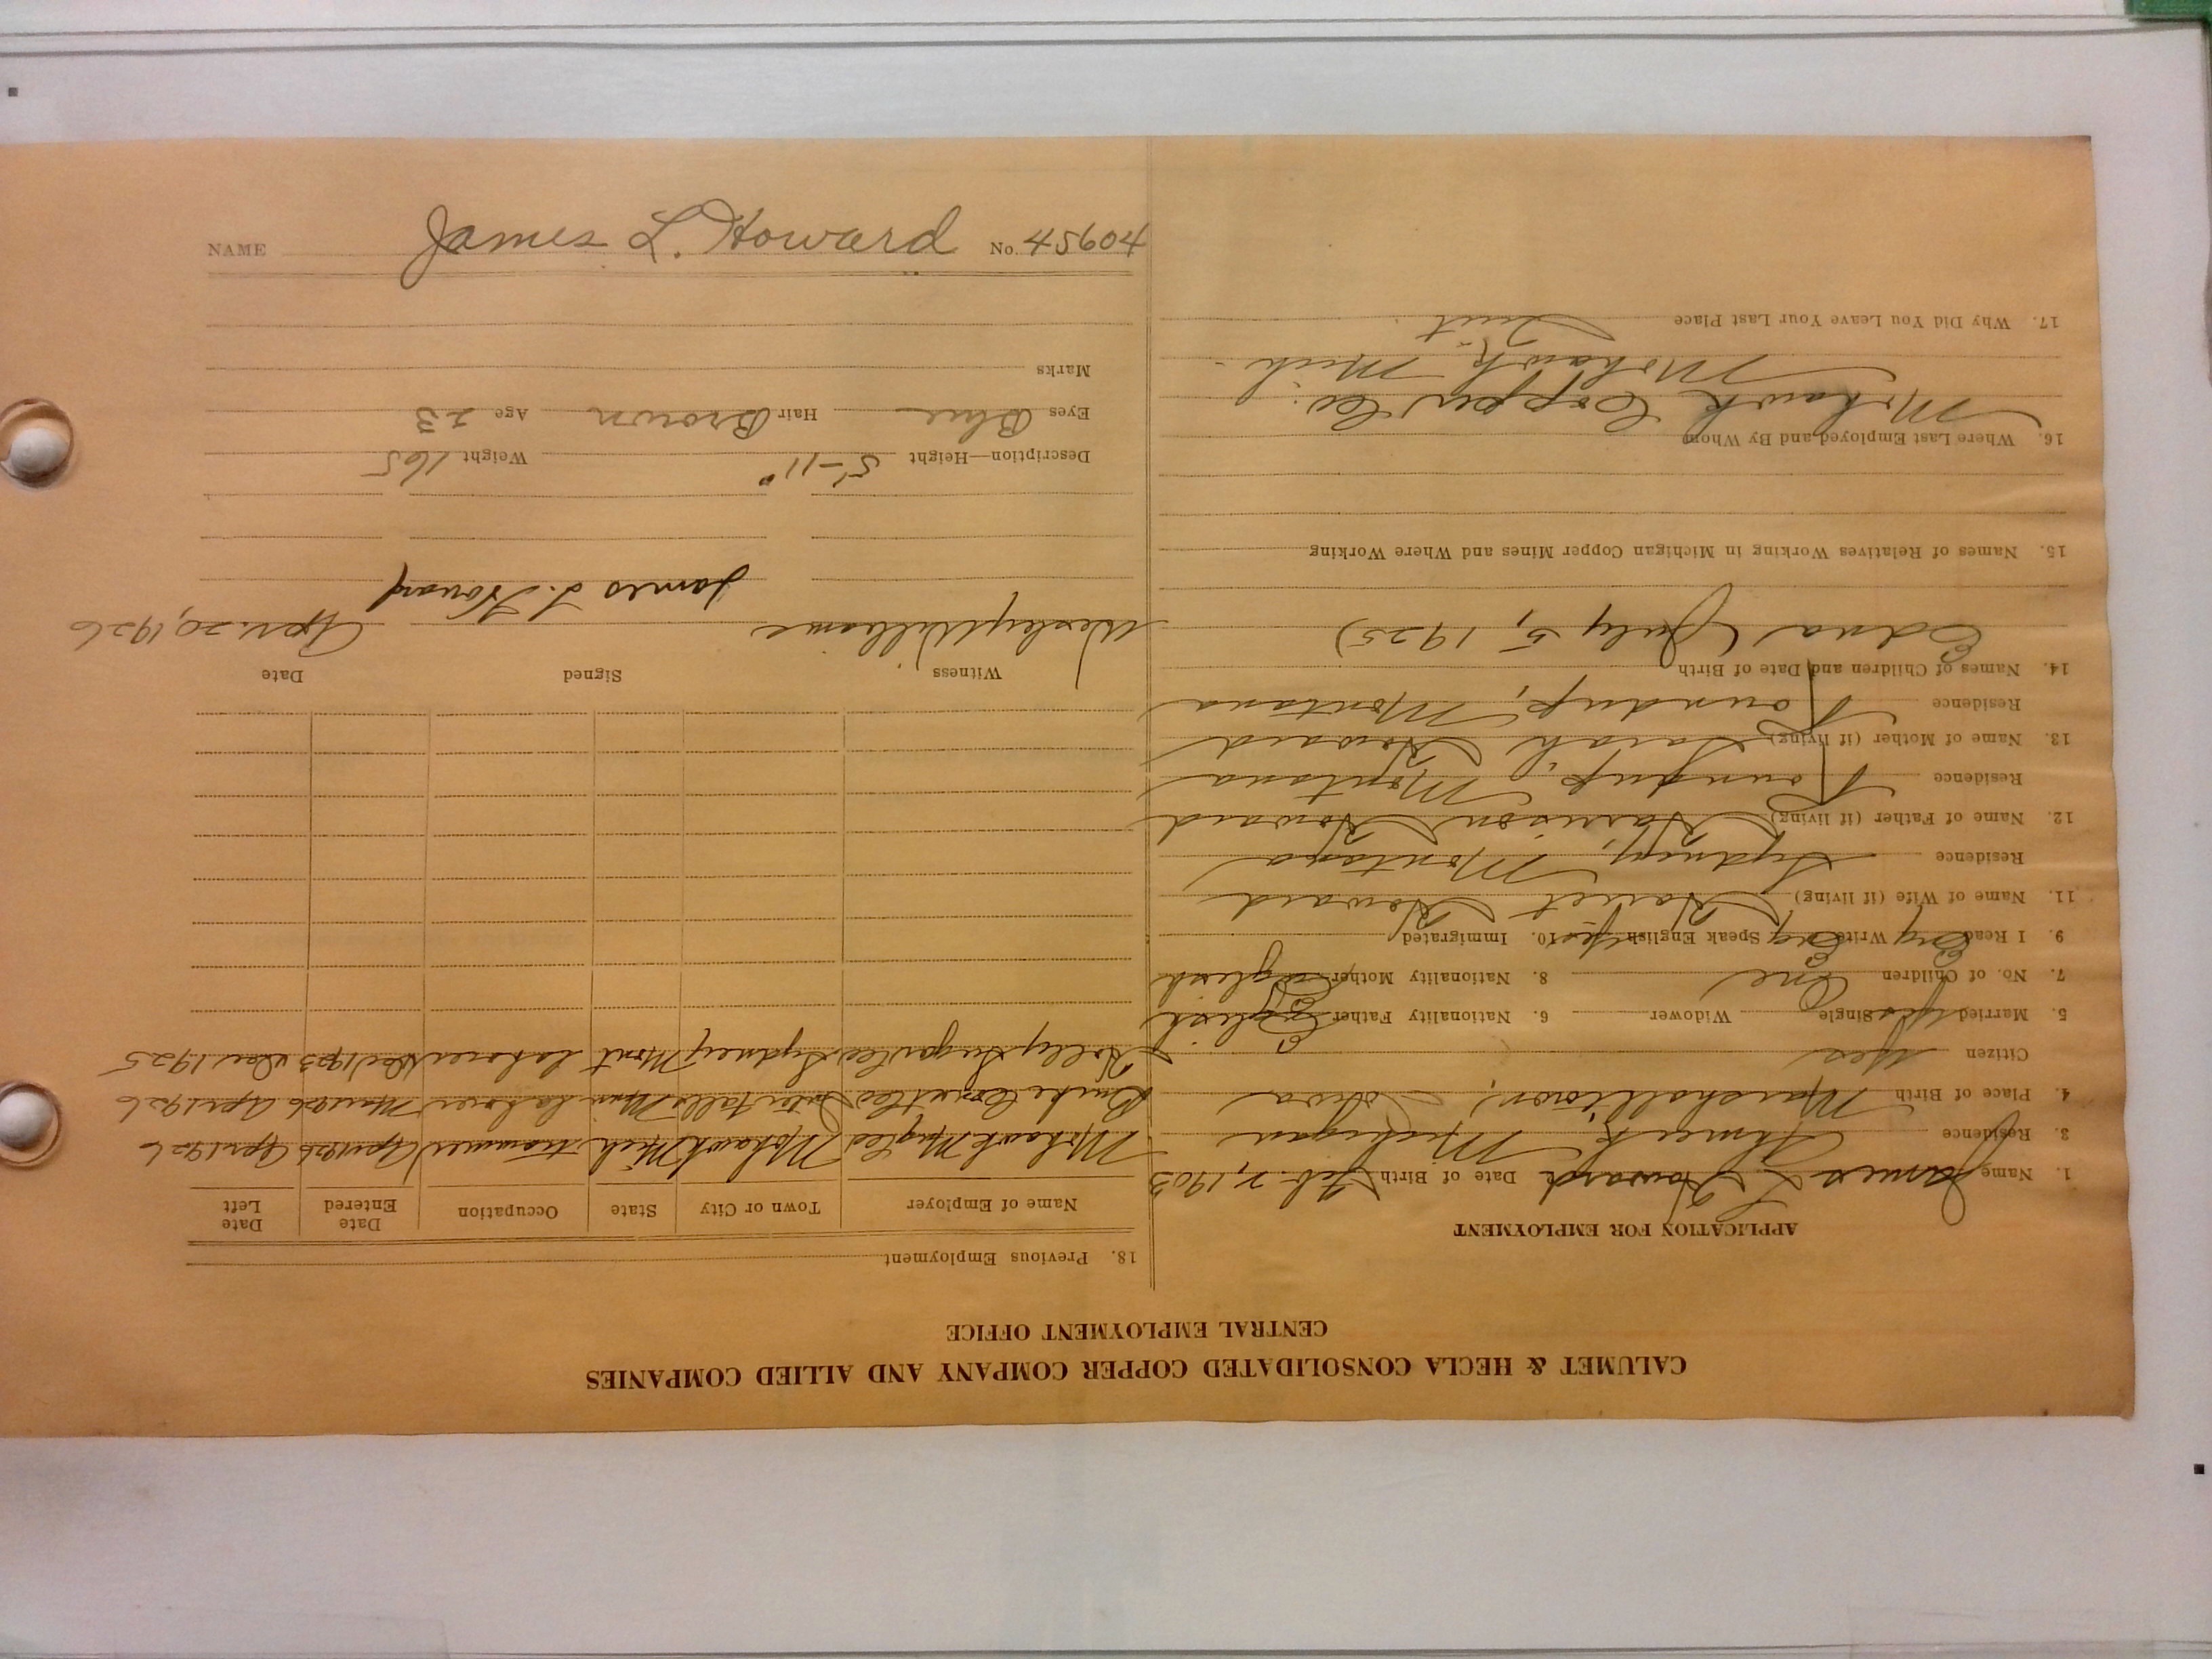 CALUMET & HECLA CONSOLIDATED COPPER COMPANY AND ALLIED COMPANIES
CENTRAL EMPLOYMENT OFFICE
APPLICATION FOR EMPLOYMENT
1. Name James L. Howard Date of Birth Feb. 7, 1903
3. Residence Ahmeek, Michigan
4. Place of Birth Marshalltown, Iowa
Citizen yes
5. Married yes Single Widower 6. Nationality Father English
7. No. of Children One 8. Nationality Mother English
9. I Read Eng Write Eng Speak English yes 10. Immigrated
11. Name of Wife (if living) Howard
Residence Sydney, Montana
12. Name of Father (if living) Harrison Howard
Residence Roundup, Montana
13. Name of Mother (if living) Sarah Howard
Residence Roundup, Montana
14. Names of Children and Date of Birth
Edna (July 5, 1925)
15. Names of Relatives Working in Michigan Copper Mines and Where Working
16. Where Last Employed and By Whom
Mohawk Copper Co.
Mohawk Mich.
17. Why Did You Leave Your Last Place Quit
18. Previous Employment
Name of Employer Town or City State Occupation Date Entered Date Left
Mohawk Mng Co Mohawk Mich trammer Apr 1926 Apr 1926
Minn laborer Mar 1926 Apr 1926
Holly Sugar Co Sydney Mont laborer 1923 1925
Witness Signed Date
Wesley Williams James L. Howard Apr. 20, 1926
Description—Height 5'-11" Weight 165
Eyes Blue Hair Brown Age 23
Marks
NAME James L. Howard No. 45604